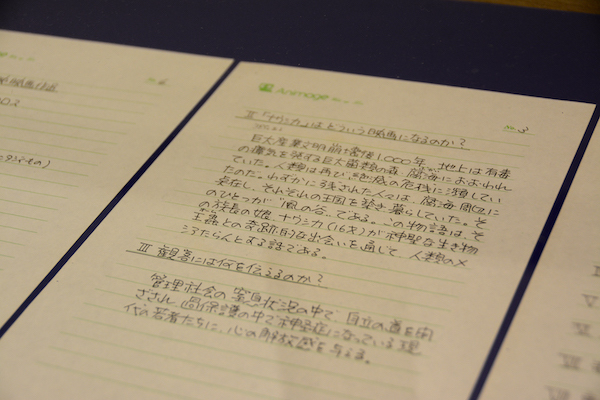 Animage
No. 3
II 「ナウシカ」はどういう映画になるのか?
巨大産業文明崩壊後1,000年、地上は有毒
の瘴気を発する巨大菌類の森、腐海におおわれ
ていた。人類は再び、絶滅の危機に瀕してい
たのだ。わずかに残された人々は、腐海周辺に
点在し、それぞれの王国を築き暮らしていた。そ
のひとつが「風の谷」である。この物語は、そ
の族長の娘、ナウシカ(16才)が神聖な生き物
王蟲との奇跡的な出会いを通じて、人類のメ
シアたらんとする話である。
III 観客には何を伝えるのか?
管理社会の窒息状況の中で、自立の道を閉
ざされ、過保護の中で神経症になっている現
代の若者たちに、心の解放感を与える。